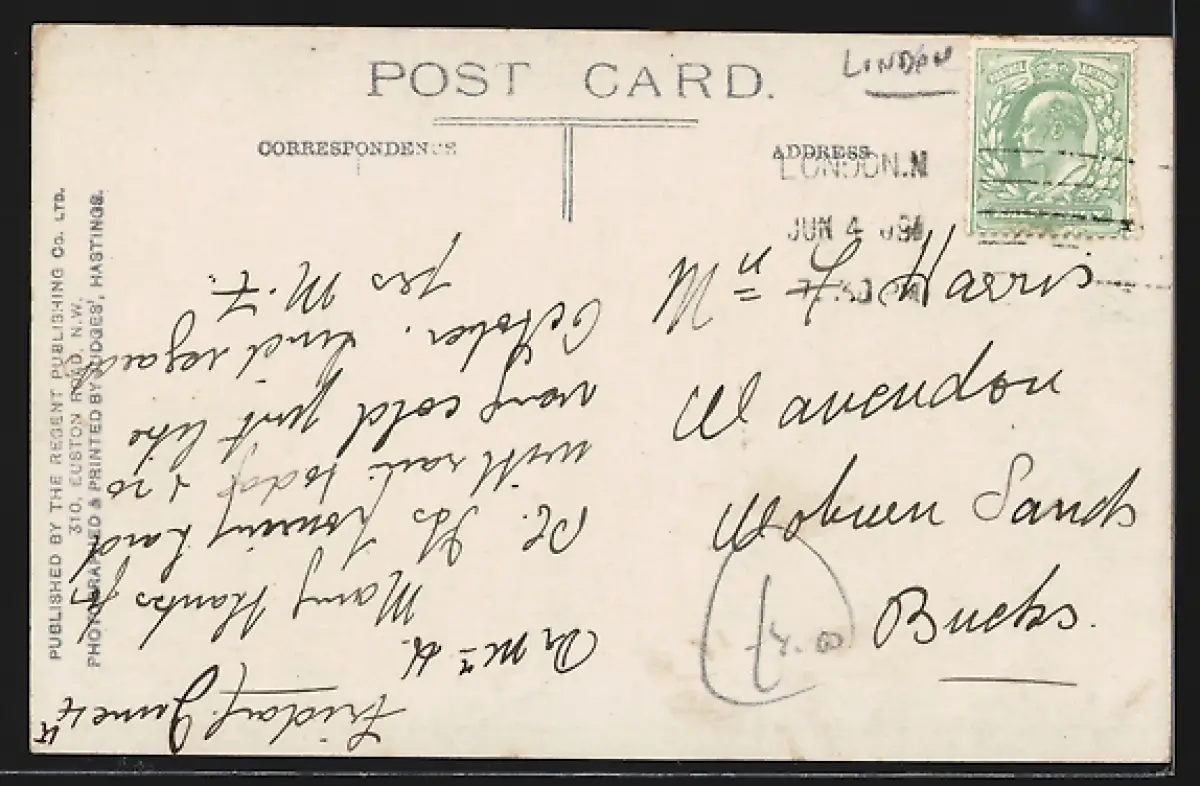 POST CARD.
LONDON
CORRESPONDENCE
ADDRESS
LONDON.N
JUN 4
PUBLISHED BY THE REGENT PUBLISHING CO. LTD.
310, EUSTON ROAD, N.W.
PHOTOGRAPHED & PRINTED BY JUDGES', HASTINGS.
Friday June 4th
Dr Mrs H.
Many thanks for
PC. Its pouring hard
with rain today & so
very cold just like
October. Kind regards
yrs M. F.
Harris
Wavendon
Woburn Sands
Bucks.